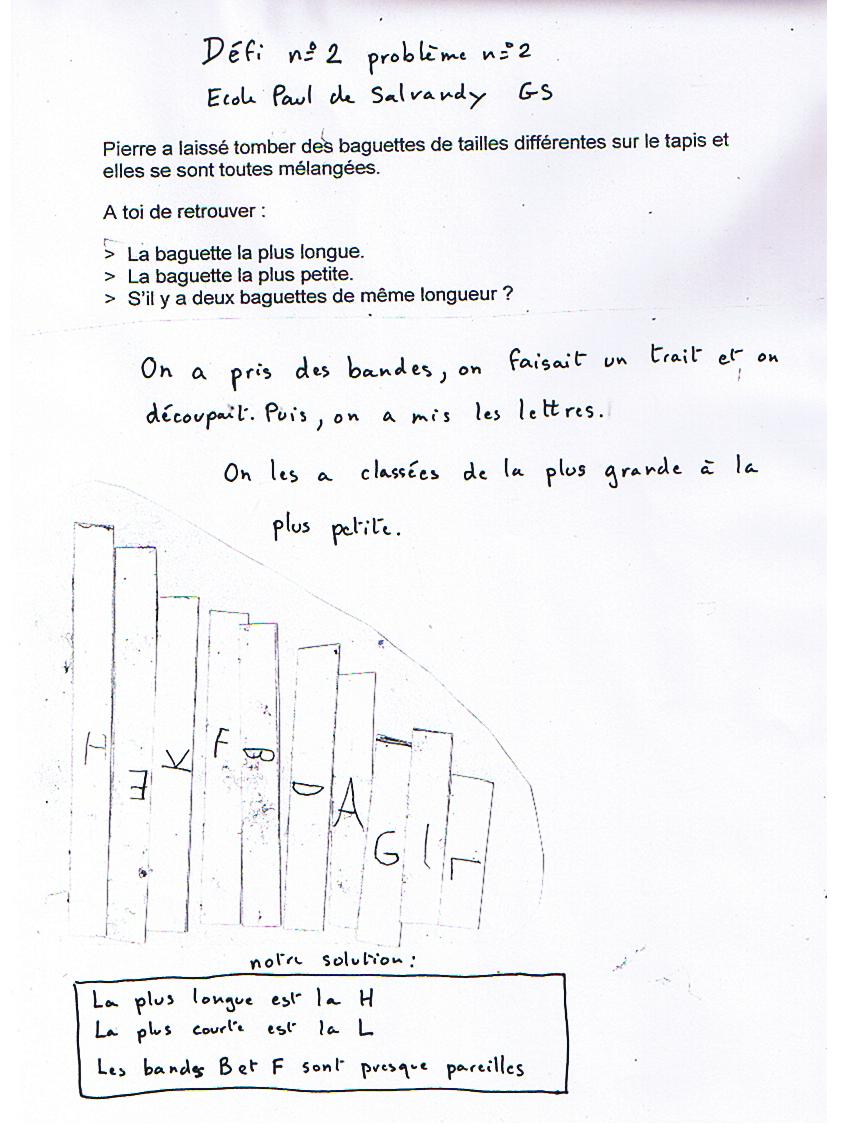 Défi n° 2 problème n° 2
Ecole Paul de Salvandy GS
Pierre a laissé tomber des baguettes de tailles différentes sur le tapis et
elles se sont toutes mélangées.
A toi de retrouver :
> La baguette la plus longue.
> La baguette la plus petite.
> S'il y a deux baguettes de même longueur ?
On a pris des bandes, on faisait un trait et on
découpait. Puis, on a mis les lettres.
On les a classées de la plus grande à la
plus petite.
H E K F B D A G I L
notre solution :
La plus longue est la H
La plus courte est la L
Les bandes B et F sont presque pareilles